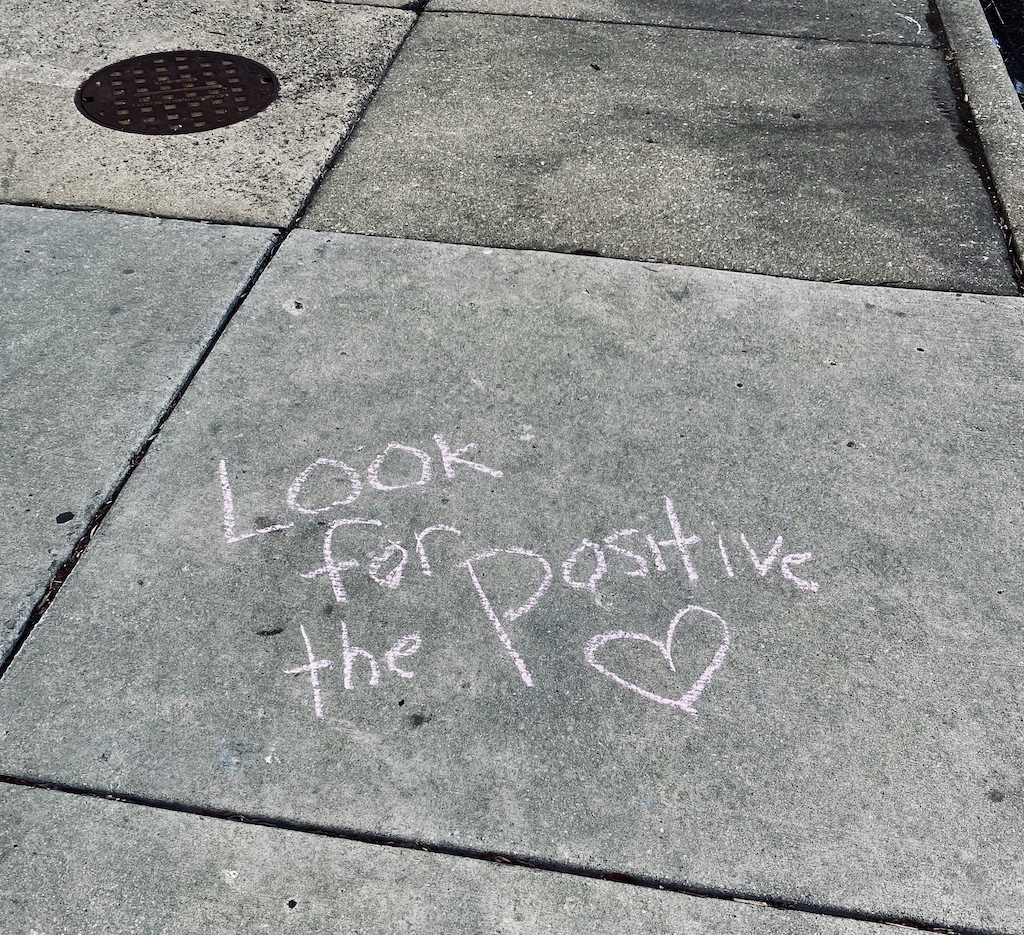 Look
for
the Positive